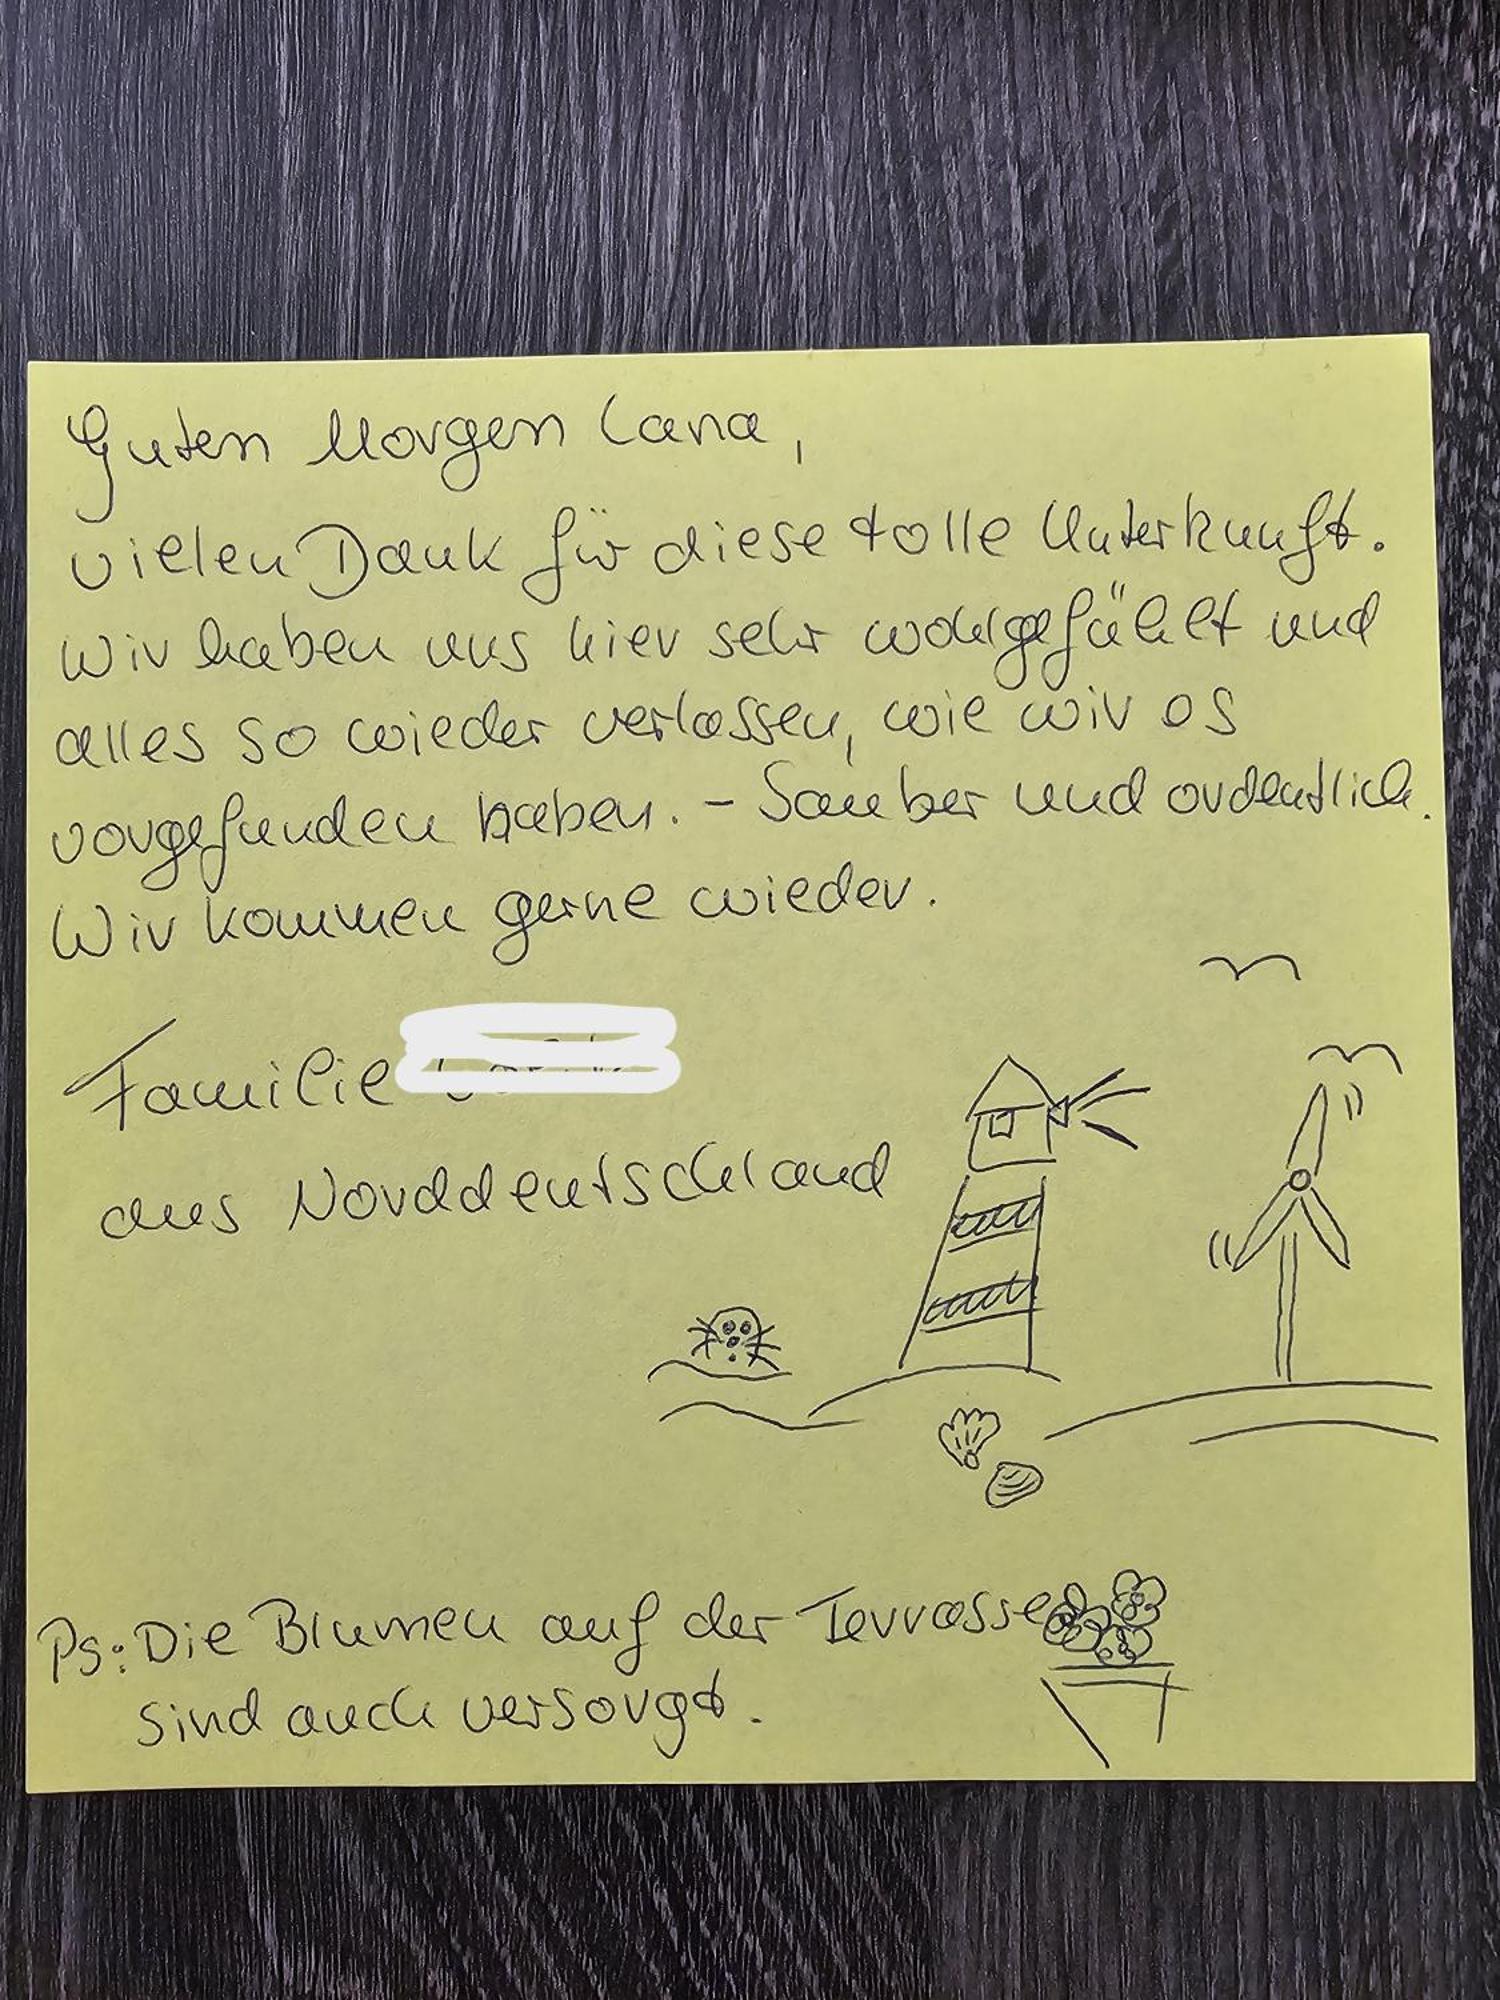 Guten Morgen Lana,
vielen Dank für diese tolle Unterkunft.
Wir haben uns hier sehr wohlgefühlt und
alles so wieder verlassen, wie wir es
vorgefunden haben. - Sauber und ordentlich.
Wir kommen gerne wieder.
Familie
aus Norddeutschland
Ps: Die Blumen auf der Terrasse
sind auch versorgt.